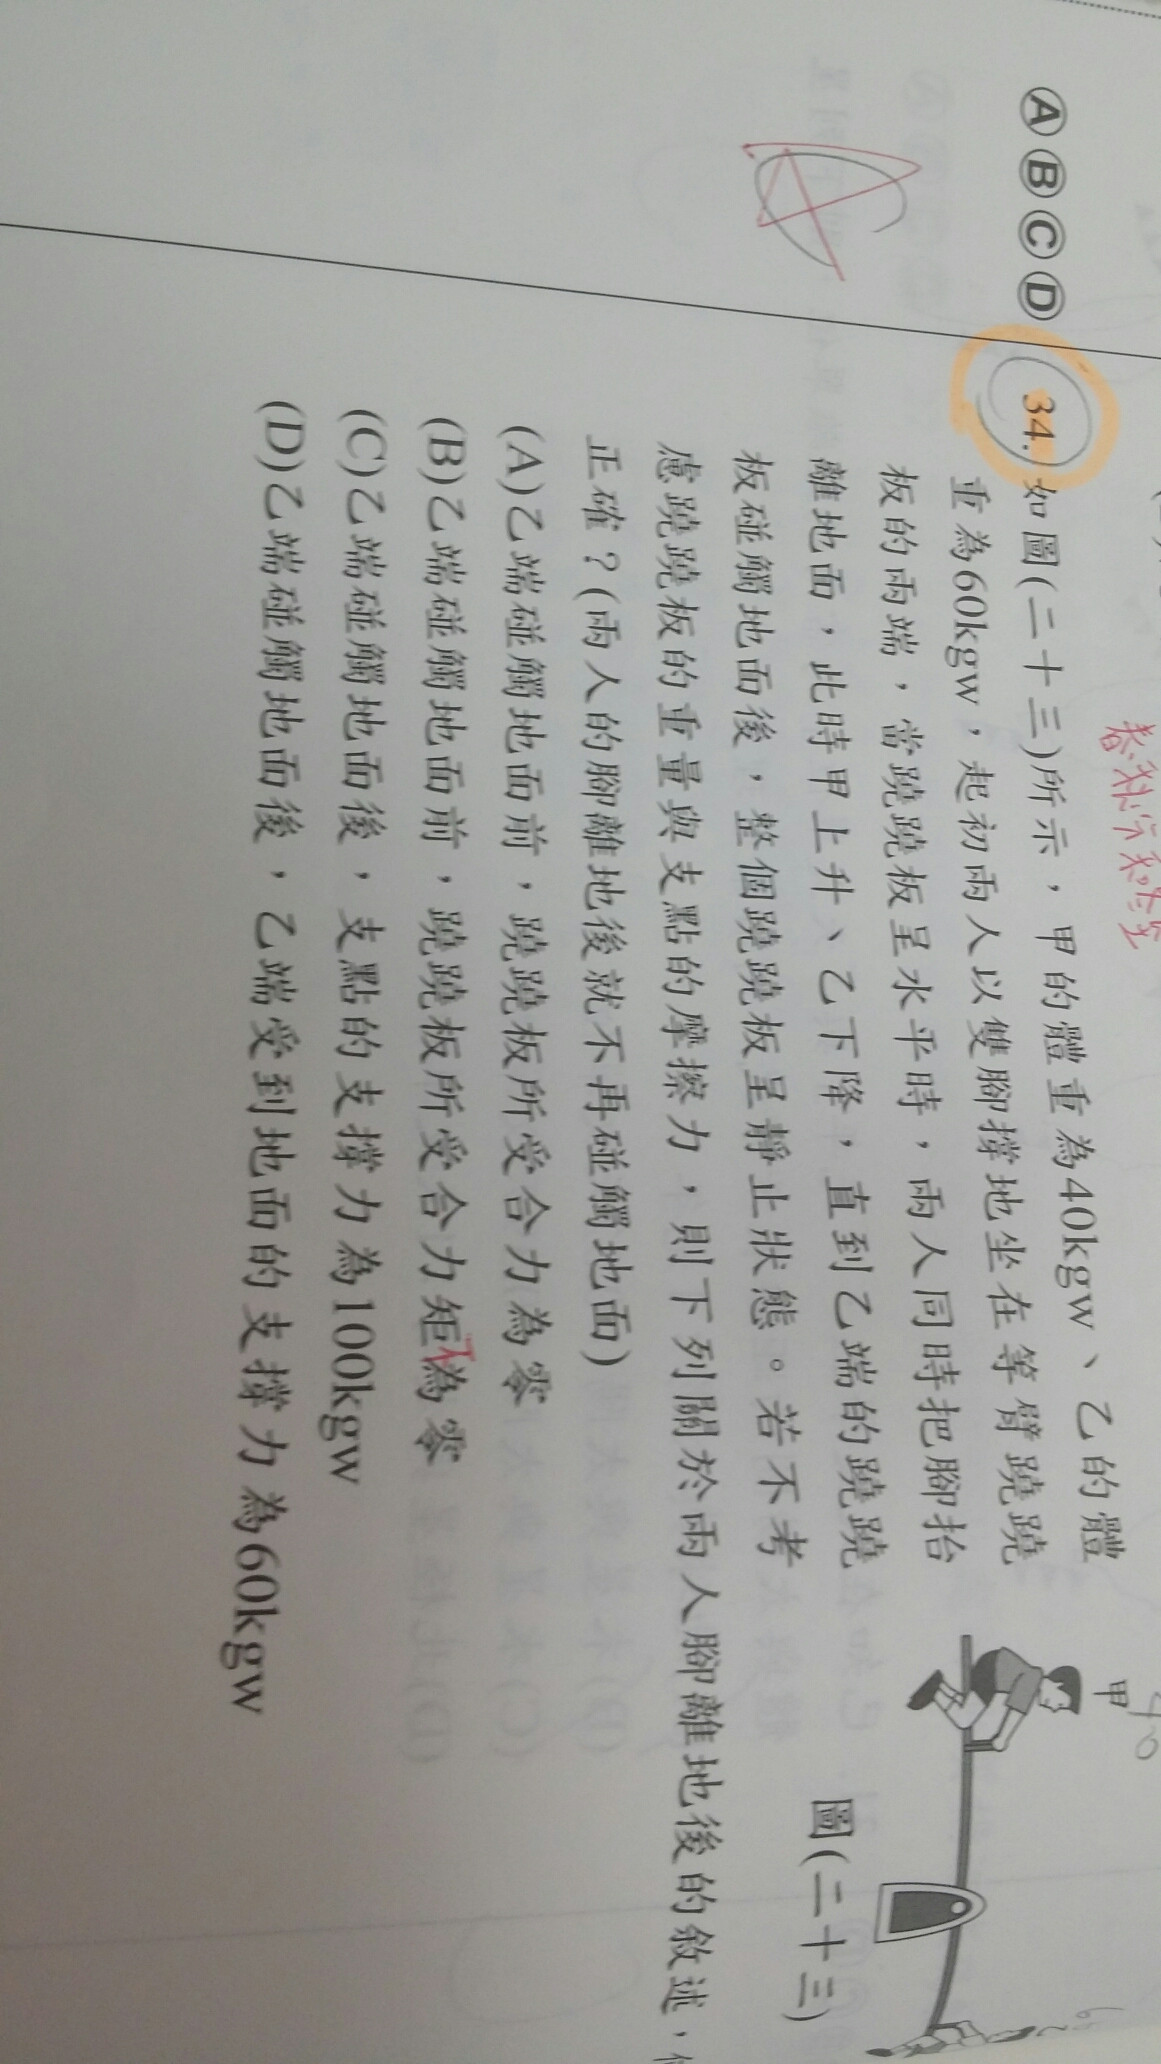 Ⓐ Ⓑ Ⓒ Ⓓ
34. 如圖(二十三)所示，甲的體重為40kgw、乙的體
重為60kgw，起初兩人以雙腳撐地坐在等臂蹺蹺
板的兩端，當蹺蹺板呈水平時，兩人同時把腳抬
離地面，此時甲上升、乙下降，直到乙端的蹺蹺
板碰觸地面後，整個蹺蹺板呈靜止狀態。若不考
慮蹺蹺板的重量與支點的摩擦力，則下列關於兩人腳離地後的敘述，
正確？(兩人的腳離地後就不再碰觸地面)
(A)乙端碰觸地面前，蹺蹺板所受合力為零
(B)乙端碰觸地面前，蹺蹺板所受合力矩為零
(C)乙端碰觸地面後，支點的支撐力為100kgw
(D)乙端碰觸地面後，乙端受到地面的支撐力為60kgw
甲
40
圖(二十三)
60